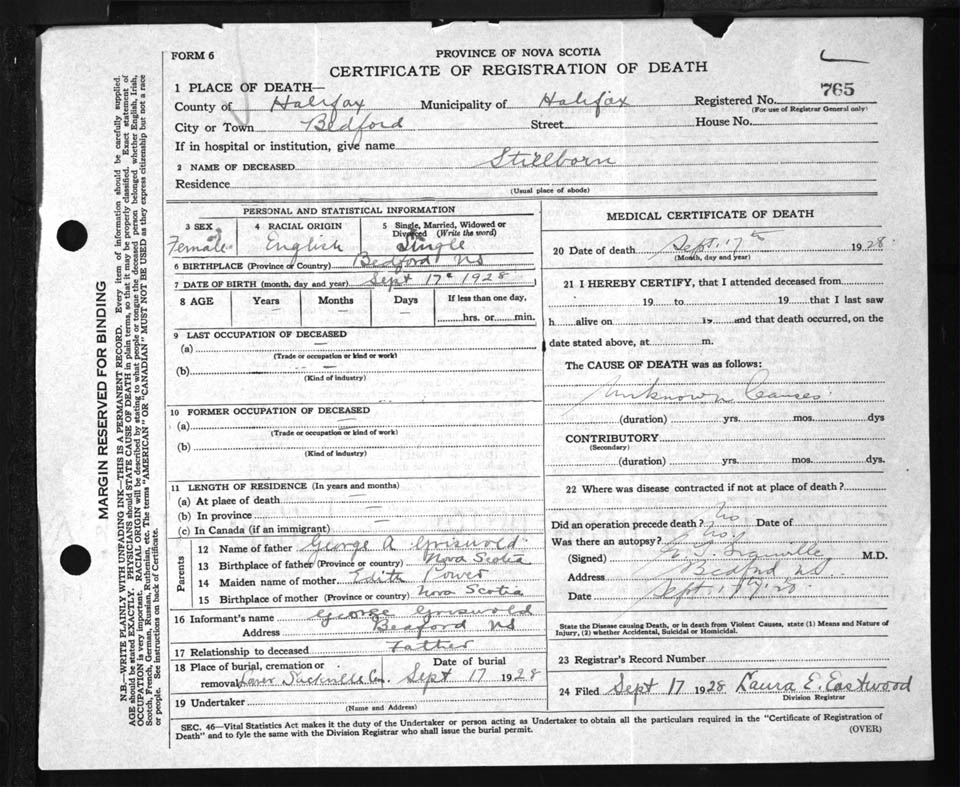 FORM 6
PROVINCE OF NOVA SCOTIA
CERTIFICATE OF REGISTRATION OF DEATH
765
1 PLACE OF DEATH—
County of Halifax Municipality of Halifax Registered No.
(For use of Registrar General only)
City or Town Bedford Street House No.
If in hospital or institution, give name
2 NAME OF DECEASED Stillborn
Residence
(Usual place of abode)
PERSONAL AND STATISTICAL INFORMATION
3 SEX 4 RACIAL ORIGIN 5 Single, Married, Widowed or Divorced (Write the word)
Female English Single
6 BIRTHPLACE (Province or Country) Bedford NS
7 DATE OF BIRTH (month, day and year) Sept 17th 1928
8 AGE Years Months Days If less than one day,
— — — hrs. or min.
9 LAST OCCUPATION OF DECEASED
(a) —
(Trade or occupation or kind or work)
(b)
(Kind of industry)
10 FORMER OCCUPATION OF DECEASED
(a) —
(Trade or occupation or kind of work)
(b) —
(Kind of industry)
11 LENGTH OF RESIDENCE (In years and months)
(a) At place of death —
(b) In province —
(c) In Canada (if an immigrant)
Parents
12 Name of father George A Griswold
13 Birthplace of father (Province or country) Nova Scotia
14 Maiden name of mother Edith Power
15 Birthplace of mother (Province or country) Nova Scotia
16 Informant's name George Griswold
Address Bedford NS
17 Relationship to deceased Father
18 Place of burial, cremation or Date of burial
removal Lower Sackville Cem. Sept 17 1928
19 Undertaker
(Name and Address)
MEDICAL CERTIFICATE OF DEATH
20 Date of death Sept. 17th 1928.
(Month, day and year)
21 I HEREBY CERTIFY, that I attended deceased from
19 to 19 that I last saw
h alive on 19 and that death occurred, on the
date stated above, at m.
The CAUSE OF DEATH was as follows:
Unknown Causes
(duration) yrs. mos. dys
CONTRIBUTORY
(Secondary)
(duration) yrs. mos. dys.
22 Where was disease contracted if not at place of death?
Did an operation precede death? No Date of
Was there an autopsy? No
(Signed) M.D.
Address Bedford NS
Date Sept
State the Disease causing Death, or in death from Violent Causes, state (1) Means and Nature of
Injury, (2) whether Accidental, Suicidal or Homicidal.
23 Registrar's Record Number
24 Filed Sept 17 1928 Laura E. Eastwood
Division Registrar
SEC. 46—Vital Statistics Act makes it the duty of the Undertaker or person acting as Undertaker to obtain all the particulars required in the "Certificate of Registration of
Death" and to fyle the same with the Division Registrar who shall issue the burial permit.
(OVER)
MARGIN RESERVED FOR BINDING
N.B.—WRITE PLAINLY WITH UNFADING INK—THIS IS A PERMANENT RECORD. Every item of information should be carefully supplied.
AGE should be stated EXACTLY. PHYSICIANS should STATE CAUSE OF DEATH in plain terms, so that it may be properly classified. Exact statement of
OCCUPATION is very important. RACIAL ORIGIN will be described by stating to what people or tongue the deceased person belonged whether English, Irish,
Scotch, French, German, Russian, Ruthenian, etc. The terms "AMERICAN" OR "CANADIAN" MUST NOT BE USED as they express citizenship but not a race
or people. See instructions on back of Certificate.